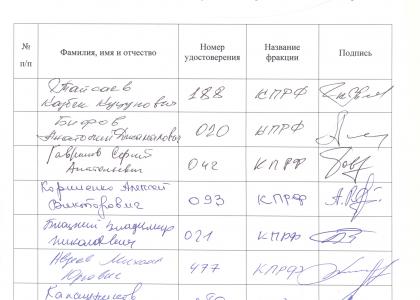 № п/п
Фамилия, имя и отчество
Номер удостоверения
Название фракции
Подпись
Тайсаев
Казбек Куцукович
188
КПРФ
Бифов
Анатолий Жамалович
020
КПРФ
Гаврилов Сергей
Анатольевич
042
КПРФ
Корниенко Алексей
Викторович
093
КПРФ
Блоцкий Владимир
Николаевич
021
КПРФ
Авдеев Михаил
Юрьевич
477
КПРФ